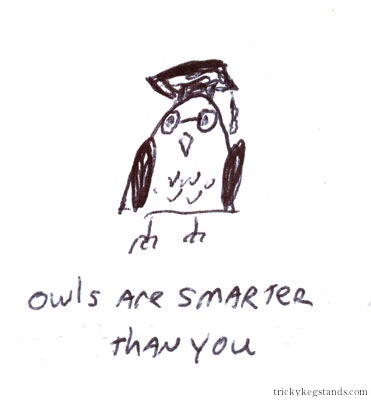 owls are smarter
than you
trickykegstands.com